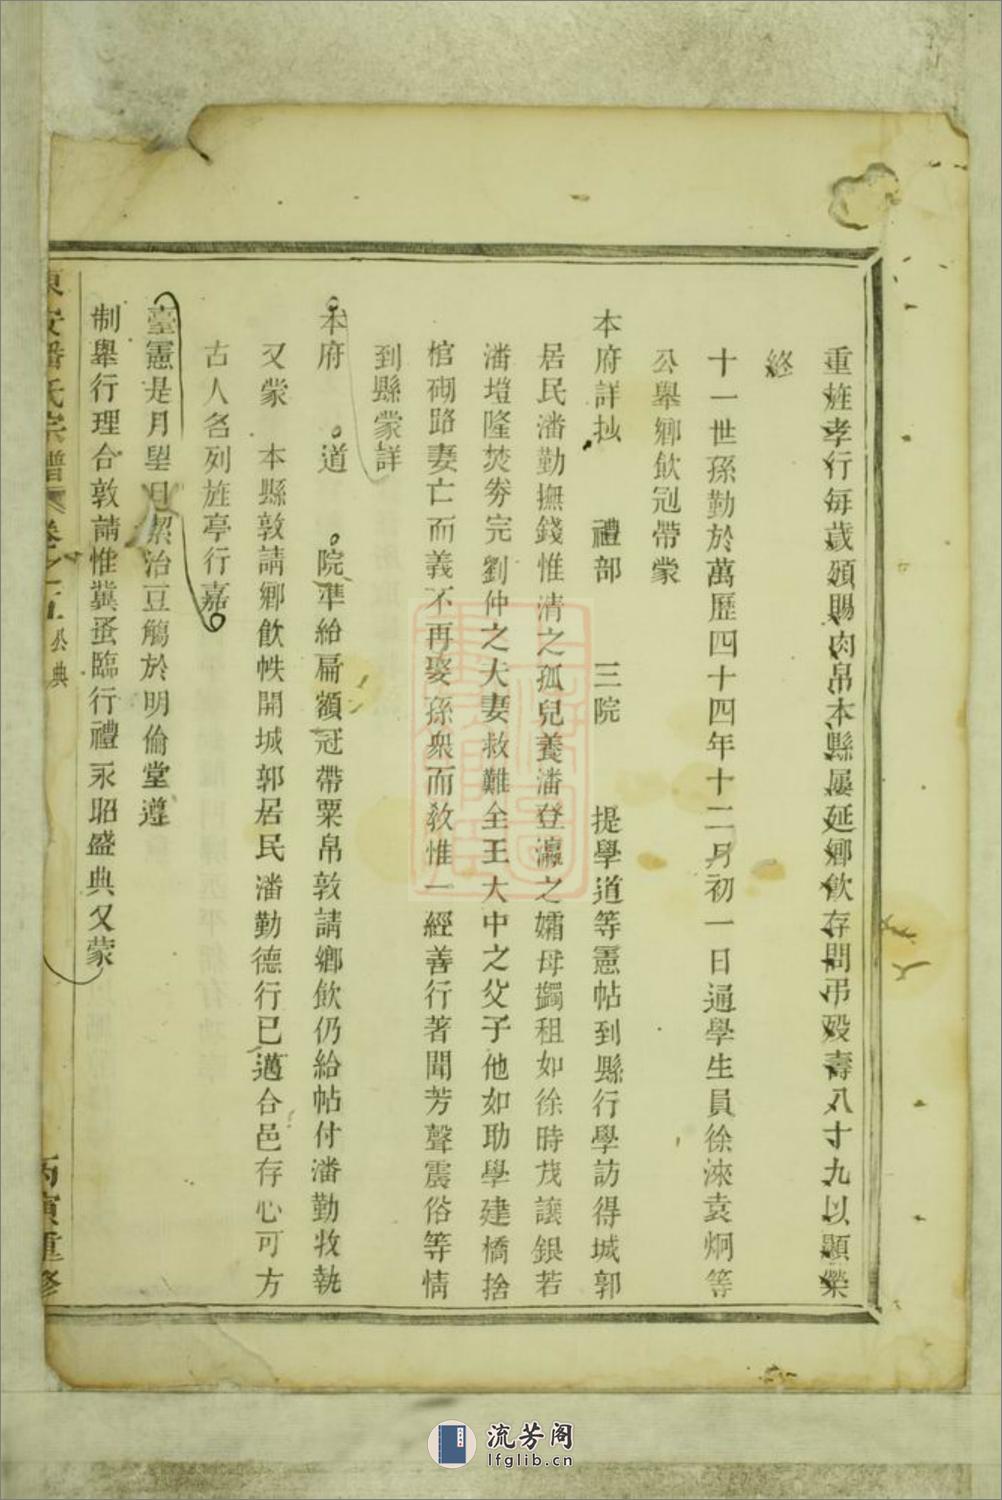 重旌孝行每歲頒賜肉帛本縣屢延鄉飲存問弔歿壽八十九以顯榮
終
十一世孫勤於萬歷四十四年十二月初一日通學生員徐淶袁炯等
公舉鄉飲冠帶蒙
本府詳抄 禮部 三院 提學道等憲帖到縣行學訪得城郭
居民潘勤撫錢惟清之孤兒養潘登瀛之孀母蠲租如徐時茂讓銀若
潘塏隆焚劵完劉仲之夫妻救難全王大中之父子他如助學建橋捨
棺砌路妻亡而義不再娶孫衆而敎惟一經善行著聞芳聲震俗等情
到縣蒙詳
本府 道 院準給扁額冠帶粟帛敦請鄉飲仍給帖付潘勤收執
又蒙 本縣敦請鄉飲帙開城郭居民潘勤德行已邁合邑存心可方
古人名列旌亭行嘉
臺憲是月望日潔治豆觴於明倫堂遵
制舉行理合敦請惟冀蚤臨行禮永昭盛典又蒙
東安潘氏宗譜 卷之五 公典 丙寅重修
流芳阁
lfglib.cn